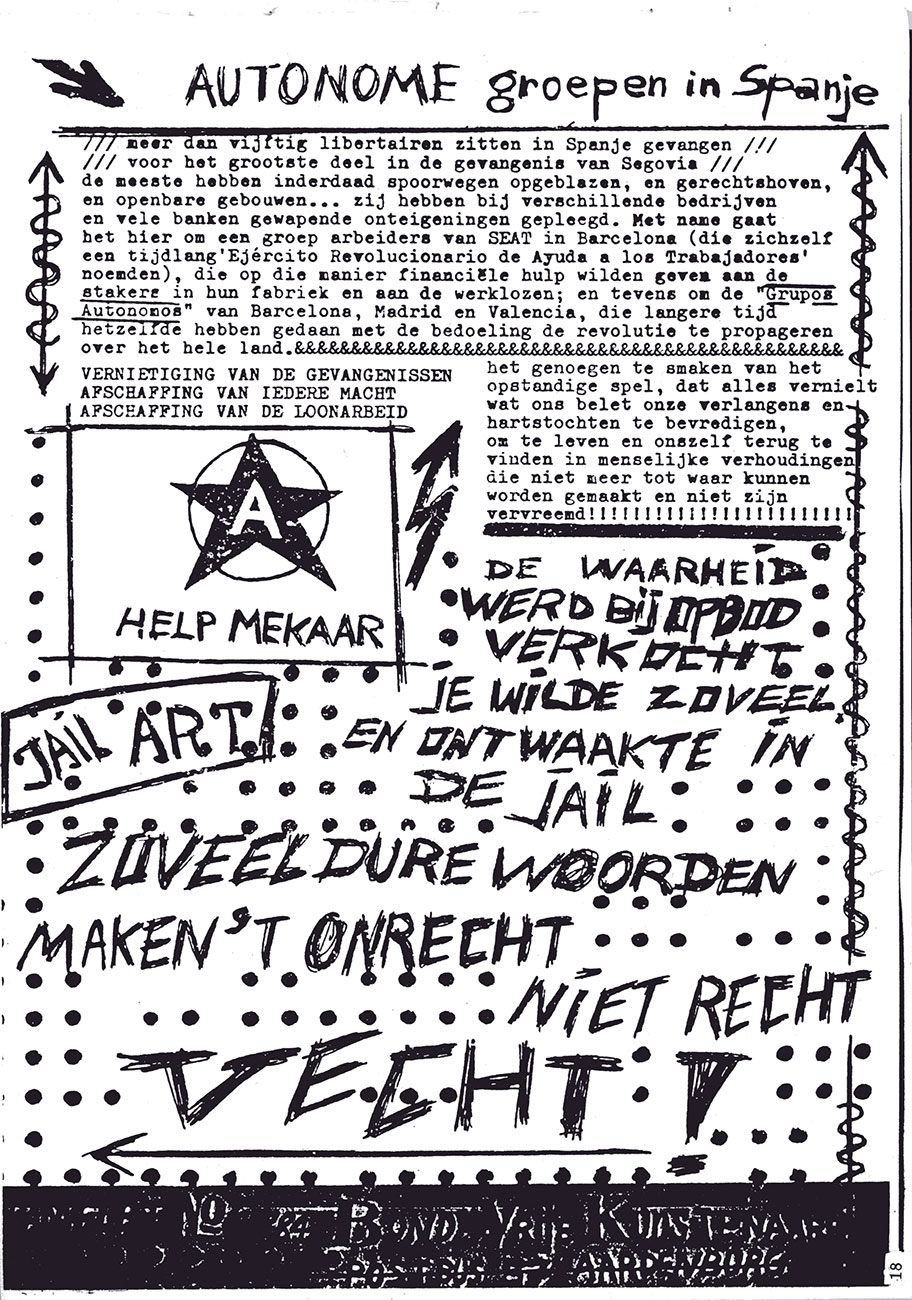 AUTONOME groepen in Spanje
/// meer dan vijftig libertairen zitten in Spanje gevangen ///
/// voor het grootste deel in de gevangenis van Segovia ///
de meeste hebben inderdaad spoorwegen opgeblazen, en gerechtshoven,
en openbare gebouwen... zij hebben bij verschillende bedrijven
en vele banken gewapende onteigeningen gepleegd. Met name gaat
het hier om een groep arbeiders van SEAT in Barcelona (die zichzelf
een tijdlang'Ejército Revolucionario de Ayuda a los Trabajadores'
noemden), die op die manier financiële hulp wilden geven aan de
stakers in hun fabriek en aan de werklozen; en tevens om de "Grupos
Autonomos" van Barcelona, Madrid en Valencia, die langere tijd
hetzelfde hebben gedaan met de bedoeling de revolutie te propageren
over het hele land.&&&&&&&&&&&&&&&&&&&&&&&&&&&&&&&&&&&&&&&&&&&&&&&&&&
VERNIETIGING VAN DE GEVANGENISSEN
AFSCHAFFING VAN IEDERE MACHT
AFSCHAFFING VAN DE LOONARBEID
A
HELP MEKAAR
het genoegen te smaken van het
opstandige spel, dat alles vernielt
wat ons belet onze verlangens en
hartstochten te bevredigen,
om te leven en onszelf terug te
vinden in menselijke verhoudingen
die niet meer tot waar kunnen
worden gemaakt en niet zijn
vervreemd!!!!!!!!!!!!!!!!!!!!!!!!!
JAIL ART
DE WAARHEID
WERD BIJ OPBOD
VERKOCHT
JE WILDE ZOVEEL
EN ONTWAAKTE IN
DE JAIL
ZOVEEL DURE WOORDEN
MAKEN 'T ONRECHT
NIET RECHT
VECHT!
No BOND VRIJE KUNSTENAARS
POSTBUS WAARDENBURG
18